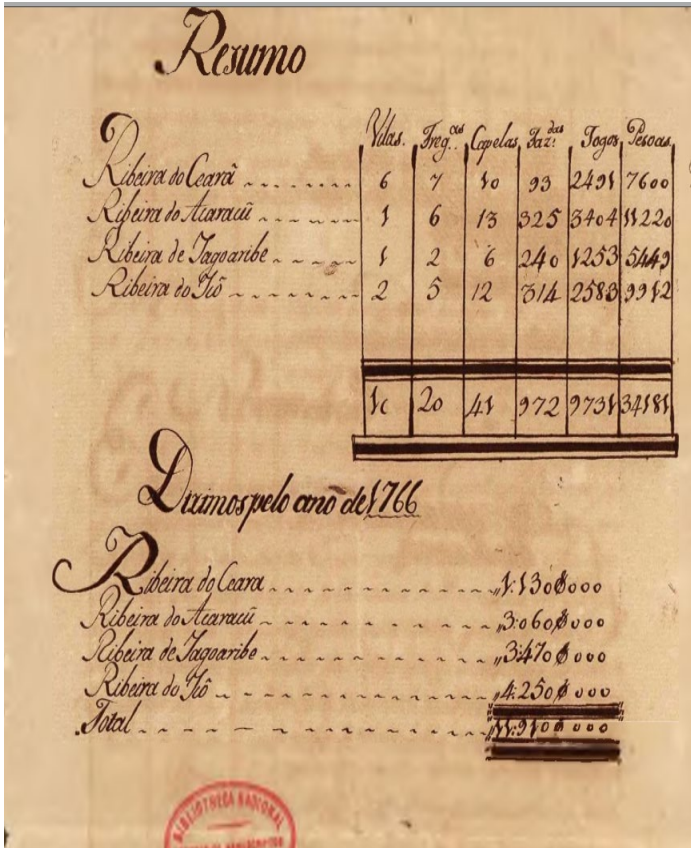 Resumo
Vilas. Freg.as Capelas Faz.das Fogos Pesoas
Ribeira do Ceará 6 7 10 93 2491 7600
Ribeira do Acaracú 1 6 13 325 3404 11220
Ribeira de Jagoaribe 1 2 6 240 1253 5449
Ribeira do Icó 2 5 12 314 2583 9912
10 20 41 972 9731 34181
Dizimos pelo ano de 1766
Ribeira do Ceara 1:130$000
Ribeira do Acaracú 3:060$000
Ribeira de Jagoaribe 3:470$000
Ribeira do Icó 4:250$000
Total 11:910$000
BIBLIOTHECA NACIONAL